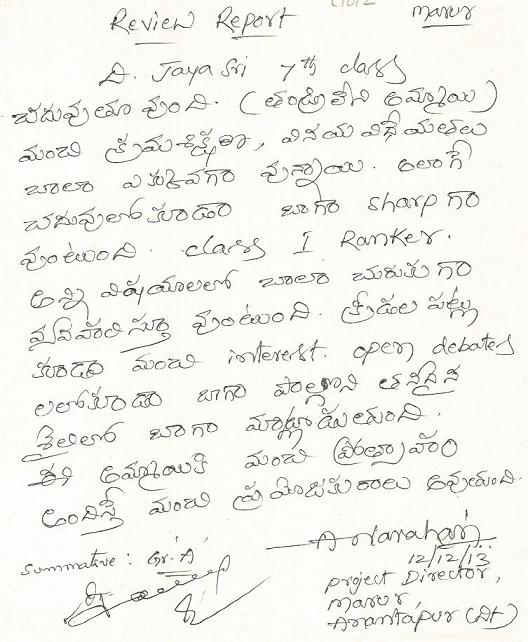 Review Report
Marur
D. Jaya Sri 7th class
చదువుతూ వుంది. (తండ్రి లేని అమ్మాయి)
మంచి క్రమశిక్షణ, వినయ విధేయతలు
చాలా ఎక్కువగా వున్నాయి. అలాగే
చదువులో కూడా బాగా sharp గా
వుంటుంది. class I Ranker.
అన్ని విషయాలలో చాలా చురుకుగా
వ్యవహరిస్తూ వుంటుంది. క్రీడల పట్ల
కూడా మంచి interest. open debates
లలో కూడా బాగా పాల్గొని తనదైన
శైలిలో బాగా మాట్లాడుతుంది.
ఈ అమ్మాయికి మంచి ప్రోత్సాహం
అందిస్తే మంచి ప్రయోజకురాలు అవుతుంది.
Summative : Gr. 'A'
A Narahari
12/12/13
Project Director,
Marur,
Anantapur (Dt)